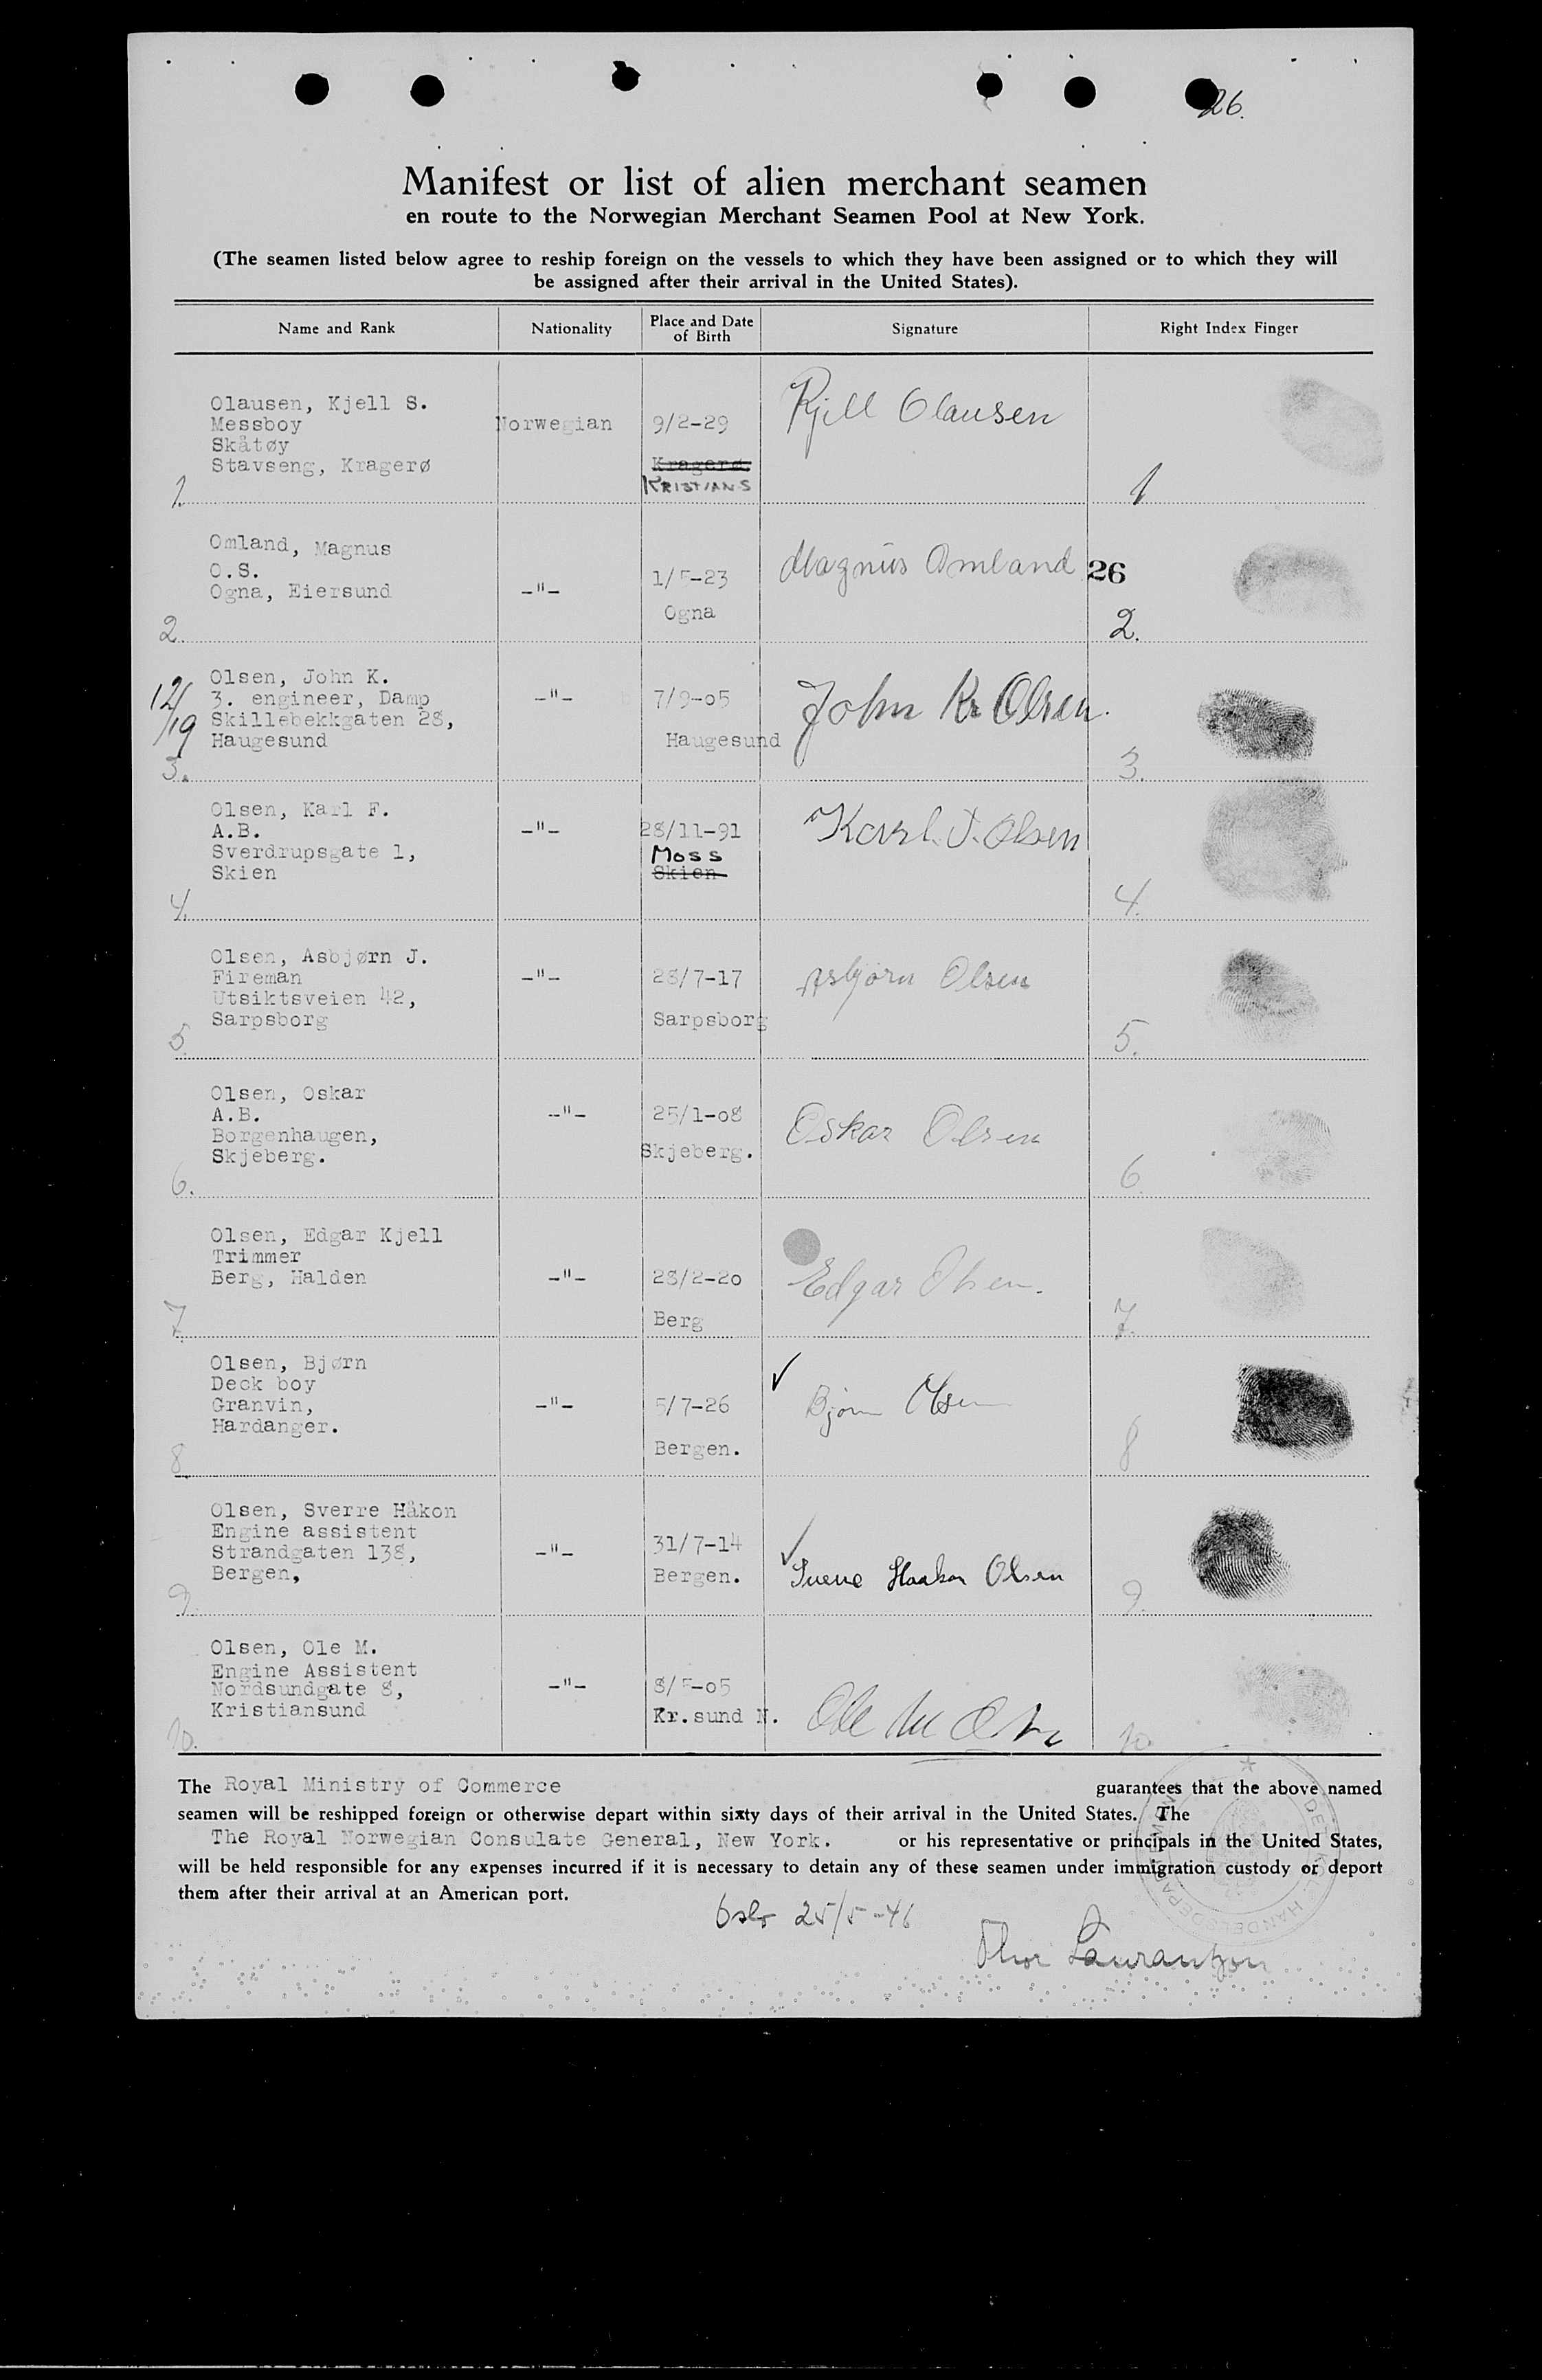 26.
Manifest or list of alien merchant seamen
en route to the Norwegian Merchant Seamen Pool at New York.
(The seamen listed below agree to reship foreign on the vessels to which they have been assigned or to which they will
be assigned after their arrival in the United States).
Name and Rank
Nationality
Place and Date
of Birth
Signature
Right Index Finger
Olausen, Kjell S.
Messboy
Skåtøy
Stavseng, Kragerø
1.
Norwegian
9/2-29
Kragerø.
KRISTIANS
Kjell Olausen
1
Omland, Magnus
O.S.
Ogna, Eiersund
2.
-"-
1/5-23
Ogna
Magnus Omland
26
2.
Olsen, John K.
3. engineer, Damp
Skillebekkgaten 28,
Haugesund
12/
/19
3.
-"-
7/9-05
Haugesund
John Kr Olsen.
3.
Olsen, Karl F.
A.B.
Sverdrupsgate 1,
Skien
4.
-"-
28/11-91
Moss
Skien
Karl. F. Olsen
4.
Olsen, Asbjørn J.
Fireman
Utsiktsveien 42,
Sarpsborg
5.
-"-
28/7-17
Sarpsborg
Asbjørn Olsen
5.
Olsen, Oskar
A.B.
Borgenhaugen,
Skjeberg.
6.
-"-
25/1-08
Skjeberg.
Oskar Olsen
6
Olsen, Edgar Kjell
Trimmer
Berg, Halden
7.
-"-
28/2-20
Berg
Edgar Olsen.
7.
Olsen, Bjørn
Deck boy
Granvin,
Hardanger.
8
-"-
5/7-26
Bergen.
Bjørn Olsen
8
Olsen, Sverre Håkon
Engine assistent
Strandgaten 138,
Bergen,
9.
-"-
31/7-14
Bergen.
Sverre Haakon Olsen
9.
Olsen, Ole M.
Engine Assistent
Nordsundgate 8,
Kristiansund
10.
-"-
8/5-05
Kr.sund N.
Ole M Olsen
10.
The Royal Ministry of Commerce guarantees that the above named
seamen will be reshipped foreign or otherwise depart within sixty days of their arrival in the United States. The
The Royal Norwegian Consulate General, New York. or his representative or principals in the United States,
will be held responsible for any expenses incurred if it is necessary to detain any of these seamen under immigration custody or deport
them after their arrival at an American port.
DET KGL. HANDELSDEPARTEMENT
Oslo 25/5-46
Thor Laurantzon